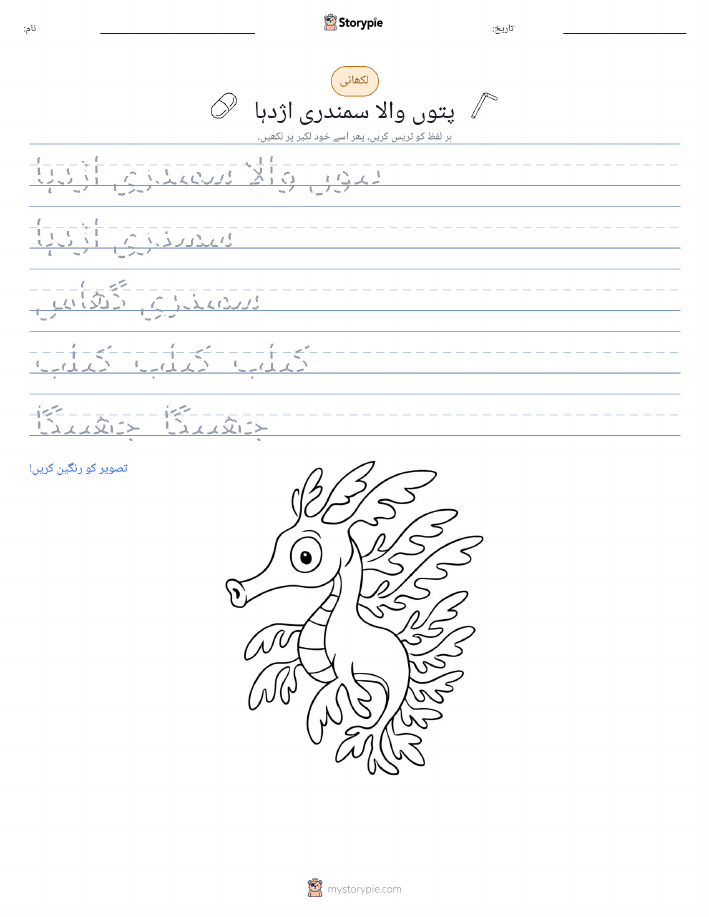 Storypie
نام:
تاریخ:
لکھائی
پتوں والا سمندری اژدہا
ہر لفظ کو ٹریس کریں، پھر اسے خود لکیر پر لکھیں۔
پتوں والا سمندری اژدہا
سمندری اژدہا
سمندری گھاس
کتاب کتاب کتاب
جھینگا جھینگا
تصویر کو رنگین کریں!
mystorypie.com